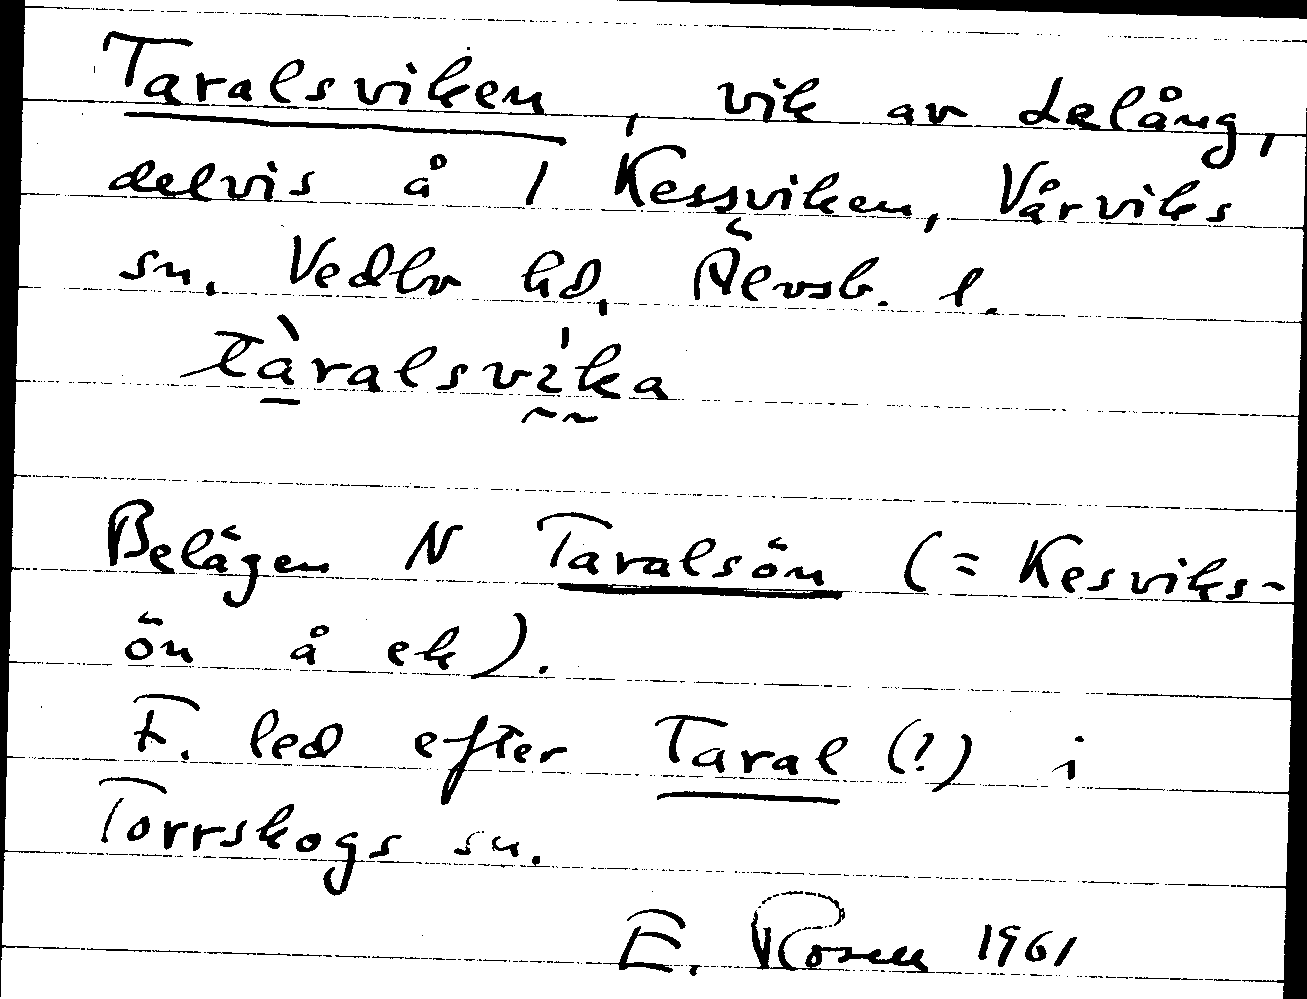 Taralsviken, vik av Lelång,
delvis å 1 Kessviken, Vårviks
sn. Vedbo hd, Älvsb. l.
tàralsvi̍ka
Belägen N Taralsön (= Kesviks-
ön å ek).
F. led efter Taral (?) i
Torrskogs sn.
E. Rosell 1961